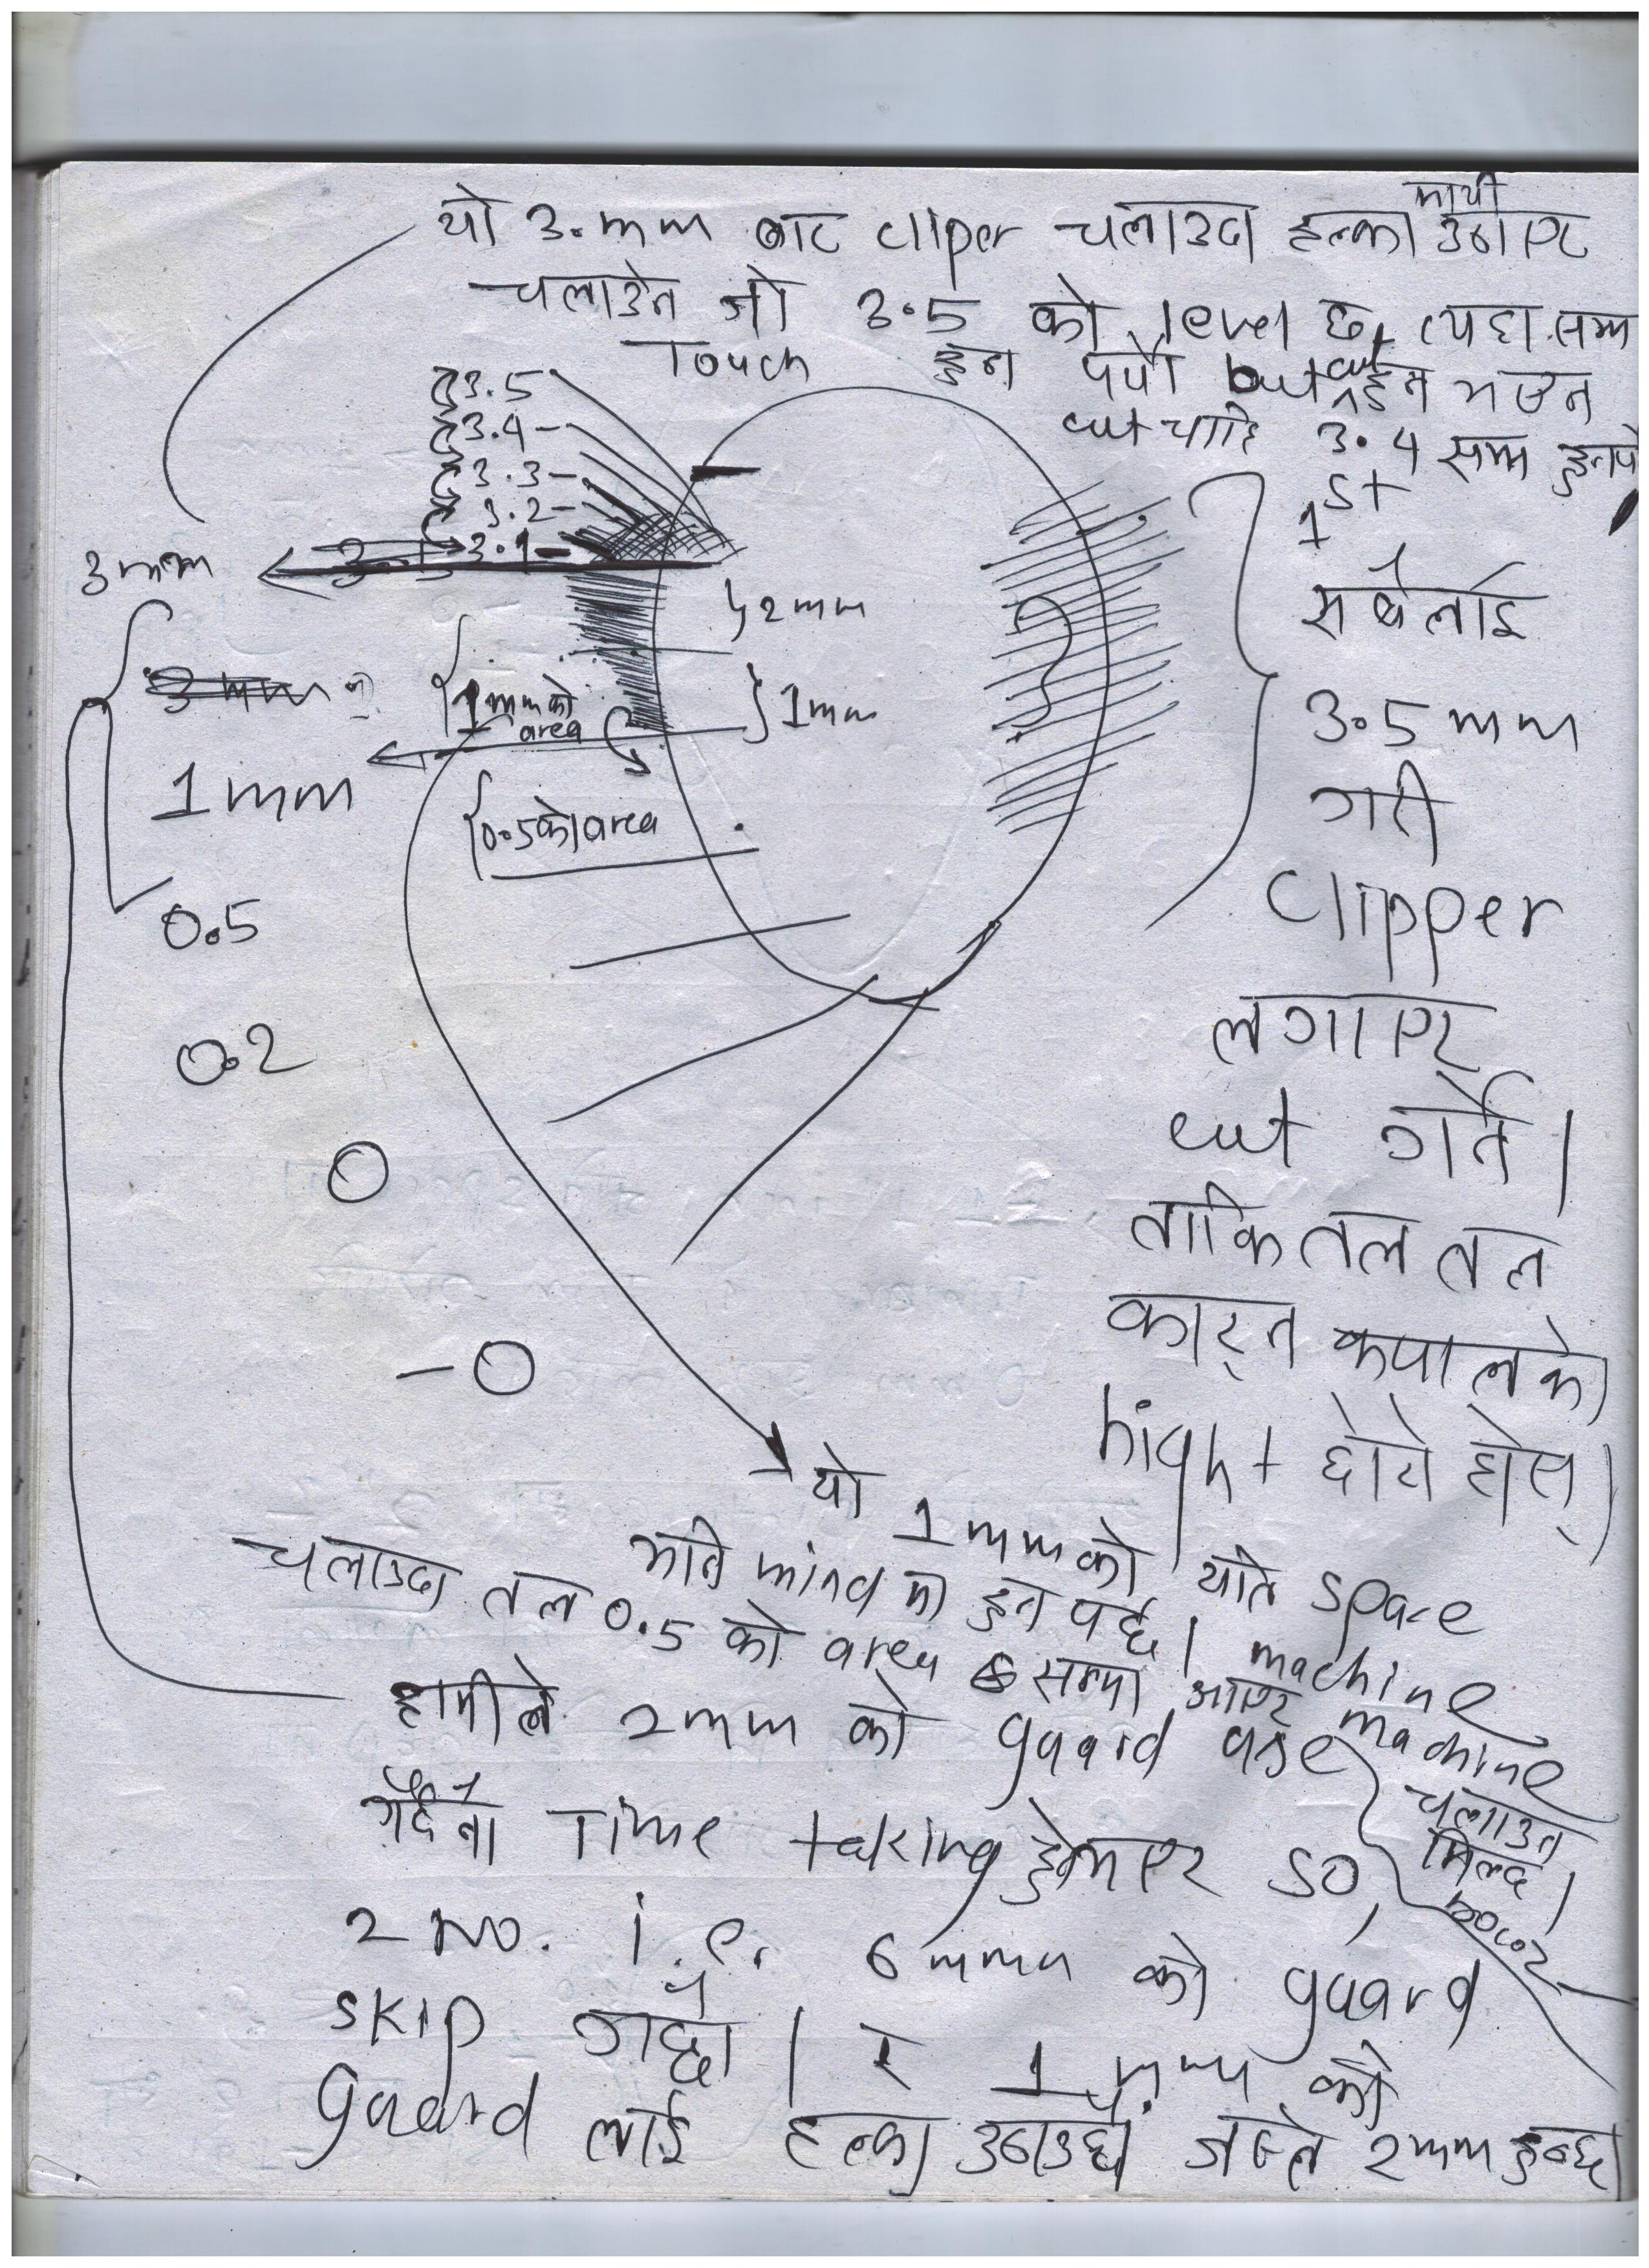 यो 3.mm बाट cliper चलाउदा हल्का माथी उठाएर
चलाउने जो 3.5 को level छ, त्यहा सम्म
Touch हुन पर्यो but cut हुन भएन
cut चाहि 3.4 सम्म हुनपर्
3.5
3.4
3.3
3.2
3.1
3mm
2mm
1mm को
area
1mm
1mm
0.5को area
0.5
0.2
0
-0
1st
सबैलाई
3.5mm
गरी
Clipper
लगाएर
cut गर्ने।
ताकि तल तल
काट्न कपालको
hight छोटो होस्।
यो 1mm को यति space
भनि mind मा हुन पर्छ। machine
चलाउदा तल 0.5 को area सम्म आएर machine
चलाउन
मिल्दछ।
हामीले 2mm को guard use
गर्दैनौ Time taking हुने भएर so,
2 No. i.e. 6mm को guard
skip गर्छौ। र 1mm को
guard लाई हल्का उठाउछौ जस्ले 2mm हुन्छ